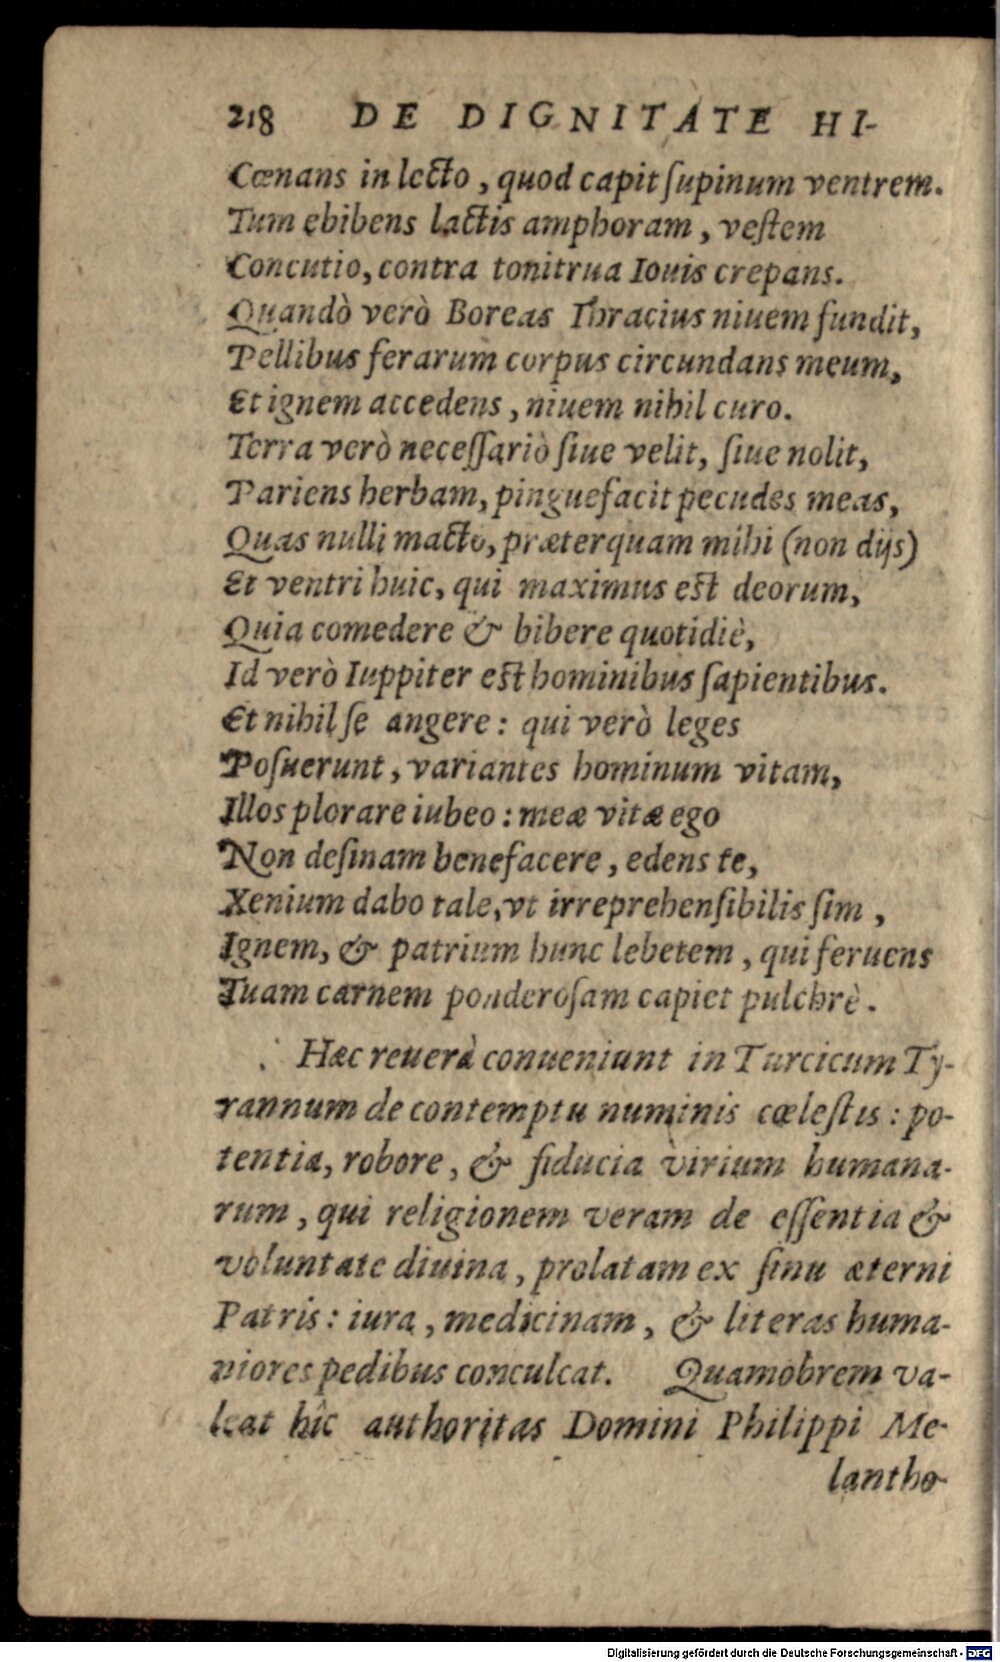 218 DE DIGNITATE HI-
Cœnans in lecto, quod capit ſupinum ventrem.
Tum ebibens lactis amphoram, veſtem
Concutio, contra tonitrua Iouis crepans.
Quandò verò Boreas Thracius niuem fundit,
Pellibus ferarum corpus circundans meum,
Et ignem accedens, niuem nihil curo.
Terra verò neceſſariò ſiue velit, ſiue nolit,
Pariens herbam, pinguefacit pecudes meas,
Quas nulli macto, præterquam mihi (non dijs)
Et ventri huic, qui maximus est deorum,
Quia comedere & bibere quotidiè,
Id verò Iuppiter est hominibus ſapientibus.
Et nihil ſe angere: qui verò leges
Poſuerunt, variantes hominum vitam,
Illos plorare iubeo: meæ vitæ ego
Non deſinam benefacere, edens te,
Xenium dabo tale, vt irreprehenſibilis ſim,
Ignem, & patrium hunc lebetem, qui feruens
Tuam carnem ponderoſam capiet pulchrè.
Hæc reuerà conueniunt in Turcicum Ty-
rannum de contemptu numinis cœleſtis: po-
tentia, robore, & fiducia virium humana-
rum, qui religionem veram de eſſentia &
voluntate diuina, prolatam ex ſinu æterni
Patris: iura, medicinam, & literas huma-
niores pedibus conculcat. Quamobrem va-
leat hîc authoritas Domini Philippi Me-
lantho-
Digitalisierung gefördert durch die Deutsche Forschungsgemeinschaft - DFG